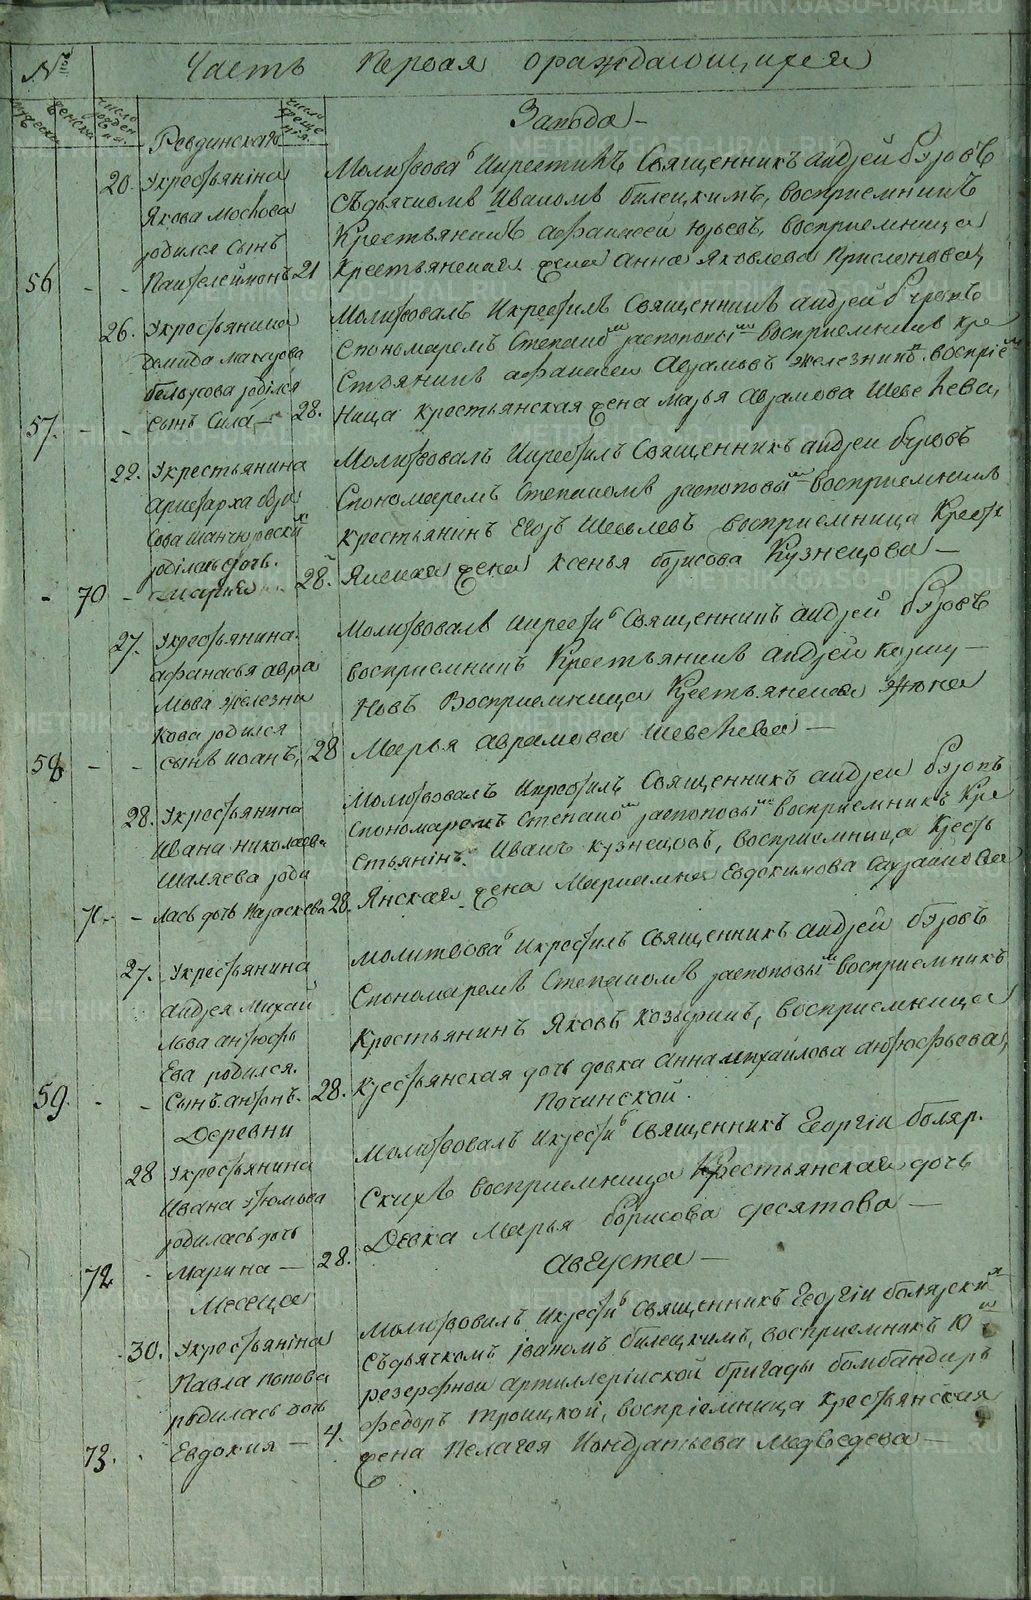 №
Часть Первая ораждающихся
мужеска
женска
число рожден
число креще нія
Ревдинскаго
Завода
20. Укрестьяніна
Якова
родился Сынъ
56 - - Пантелеймонъ 21
Молитвова Икрестилъ Священникъ андрей
Съдьячкомъ Иваномъ билецкимъ, восприемникъ
Крестьянинъ афанасей юрьевъ, восприемница
Крестьянская жена Анна Яковлева
26. Укрестьянина
Демида
белоусова родился
57. - - сынъ Сила 28.
Молитвовалъ Икрестилъ Священникъ андрей
Спономаремъ Степано распоповымъ восприемникъ кре
стьянинъ афанасей Аврамовъ железникъ восприем
ница крестьянская жена Марья Аврамова
22. Укрестьянина
Аристарха
родилась дочь.
- 70 - Мария 28.
Молитвовалъ Икрестилъ Священникъ андрей
Спономаремъ Степаномъ распоповымъ восприемникъ
крестьянинъ Егоръ Шевелевъ восприемница Кресть
Янская жена Ксенья борисова Кузнецова
27. Укрестьянина.
афанасья авра
мова железни
кова родился
58 - - сынъ иоанъ, 28
Молитвовалъ икрести Священникъ андрей
восприемникъ Крестьянинъ андрей
новъ Восприемница Крестьянская жена
Марья аврамова
28. Укрестьянина
Ивана николаева
Шаляева роди
71. - лась дочь Параскева 28.
Молитвовалъ Икрестилъ Священникъ андрей
Спономаремъ Степано распоповымъ восприемникъ Кре
стьянінъ Иванъ кузнецовъ, восприемница Кресть
Янская жена Мариамна Евдокимова
27. Укрестьянина
андрея Михай
лова антюфь
Ева родился.
59. - - Сынъ антонъ. 28.
Молитвова Икрестилъ Священникъ андрей
Спономаремъ Степаномъ распоповымъ восприемникъ
Крестьянинъ Яковъ восприемница
Крестьянская дочь девка Анна михайлова антюфьева,
Деревни
Починской.
28 Укрестьянина
Ивана
родилась дочь
72 - Марина 28.
Молитвовалъ Икрести Священникъ Георгіи боляр.
скихъ восприемница Крестьянская дочь
Девка Марья борисова десятова
Месеца
Августа
30. Укрестьяніна
Павла попова
родилась дочь
73. Евдокия 4.
Молитвовалъ Икрести Священникъ Георгіи болярски
Съдьячкомъ іваномъ билецкимъ, восприемникъ 10
резерфной артиллерійской бригады бомбандиръ
федоръ троицкой, восприемница Крестьянская
жена Пелагея Кондратьева Медведева